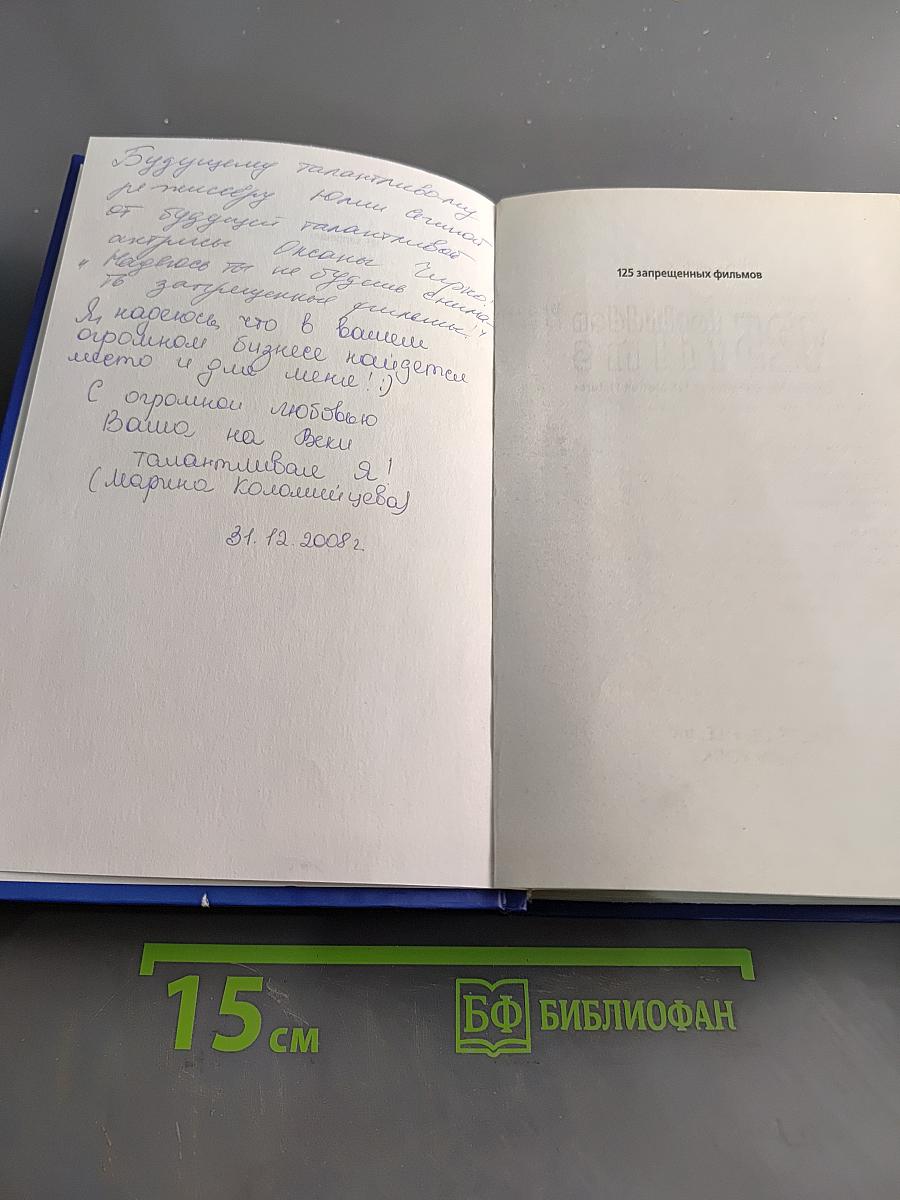 Будущему талантливому
режиссёру Юлии
от будущей талантливой
актрисы Оксаны Чирко!
"Надеюсь ты не будешь снима-
ть запрещенные фильмы!"
Я, надеюсь, что в вашем
огромном бизнесе найдется
место и для меня! :)
С огромной любовью
Ваша на веки
талантливая Я!
(Марина Коломийцева)
31.12.2008 г.
125 запрещенных фильмов
15 см
БФ БИБЛИОФАН